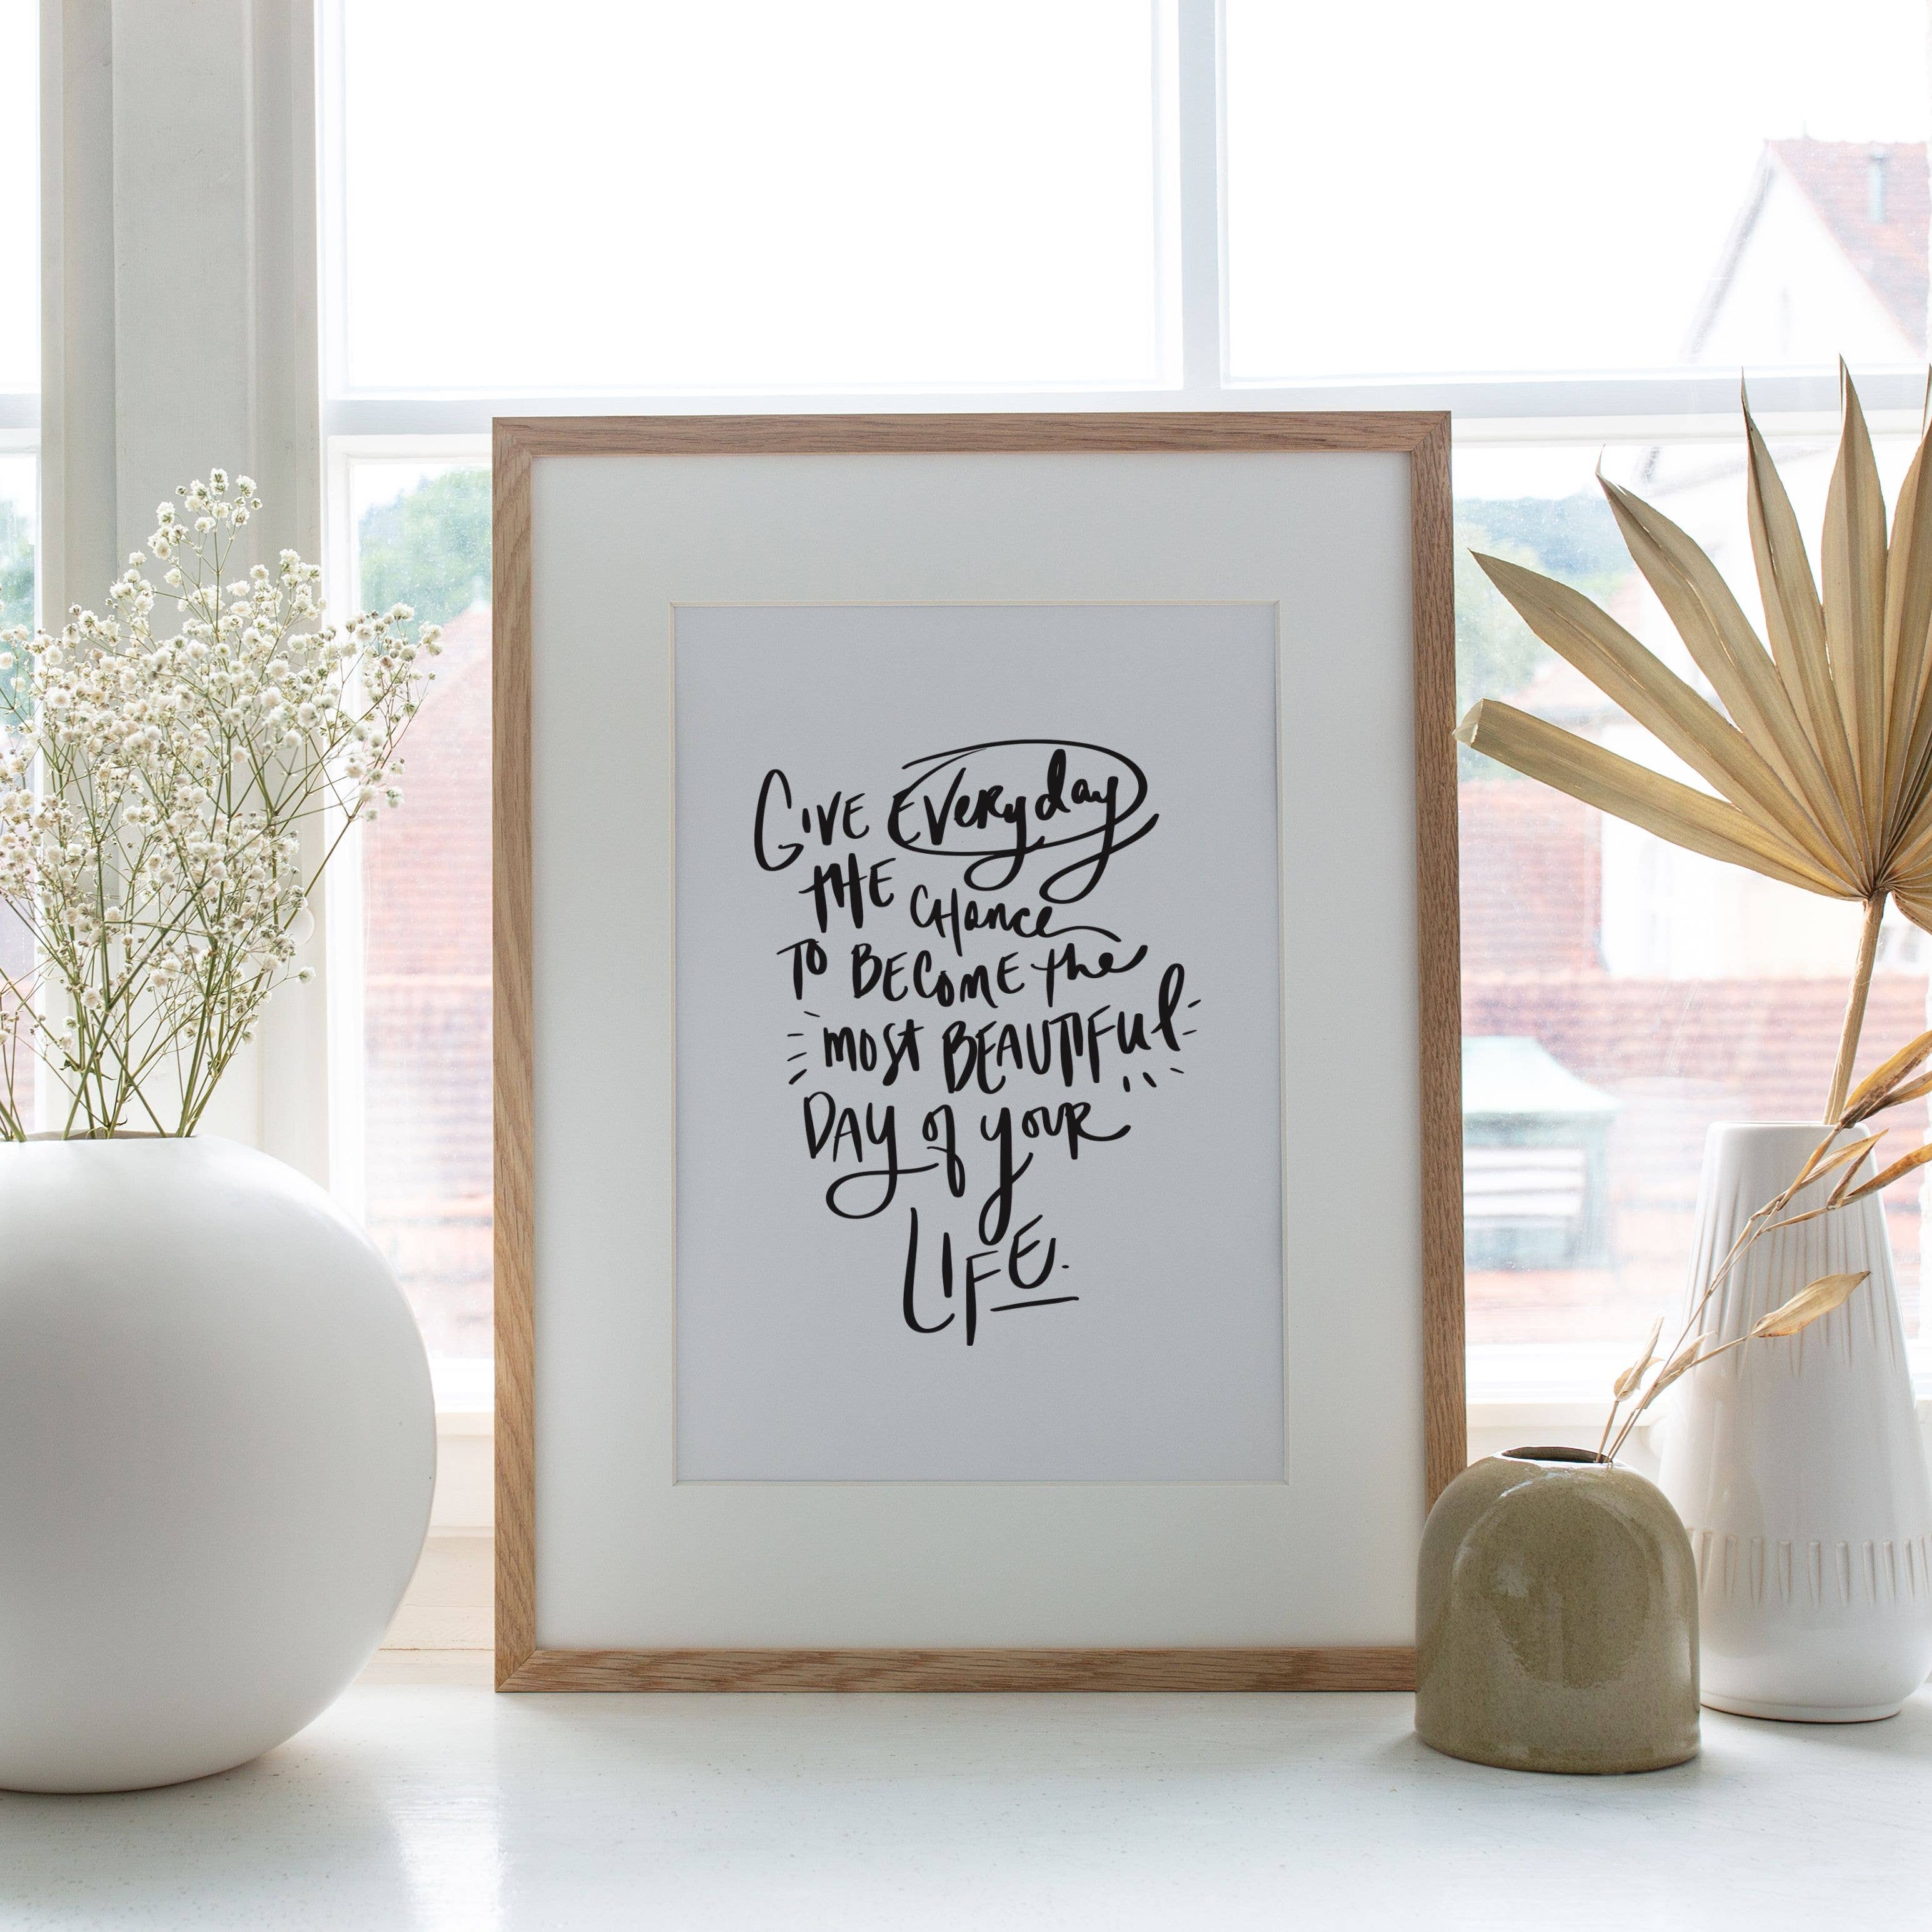 GIVE EVERYday
THE CHance
TO BECOME the
most BEAUTIFUL
DAY of youR
LIFE.